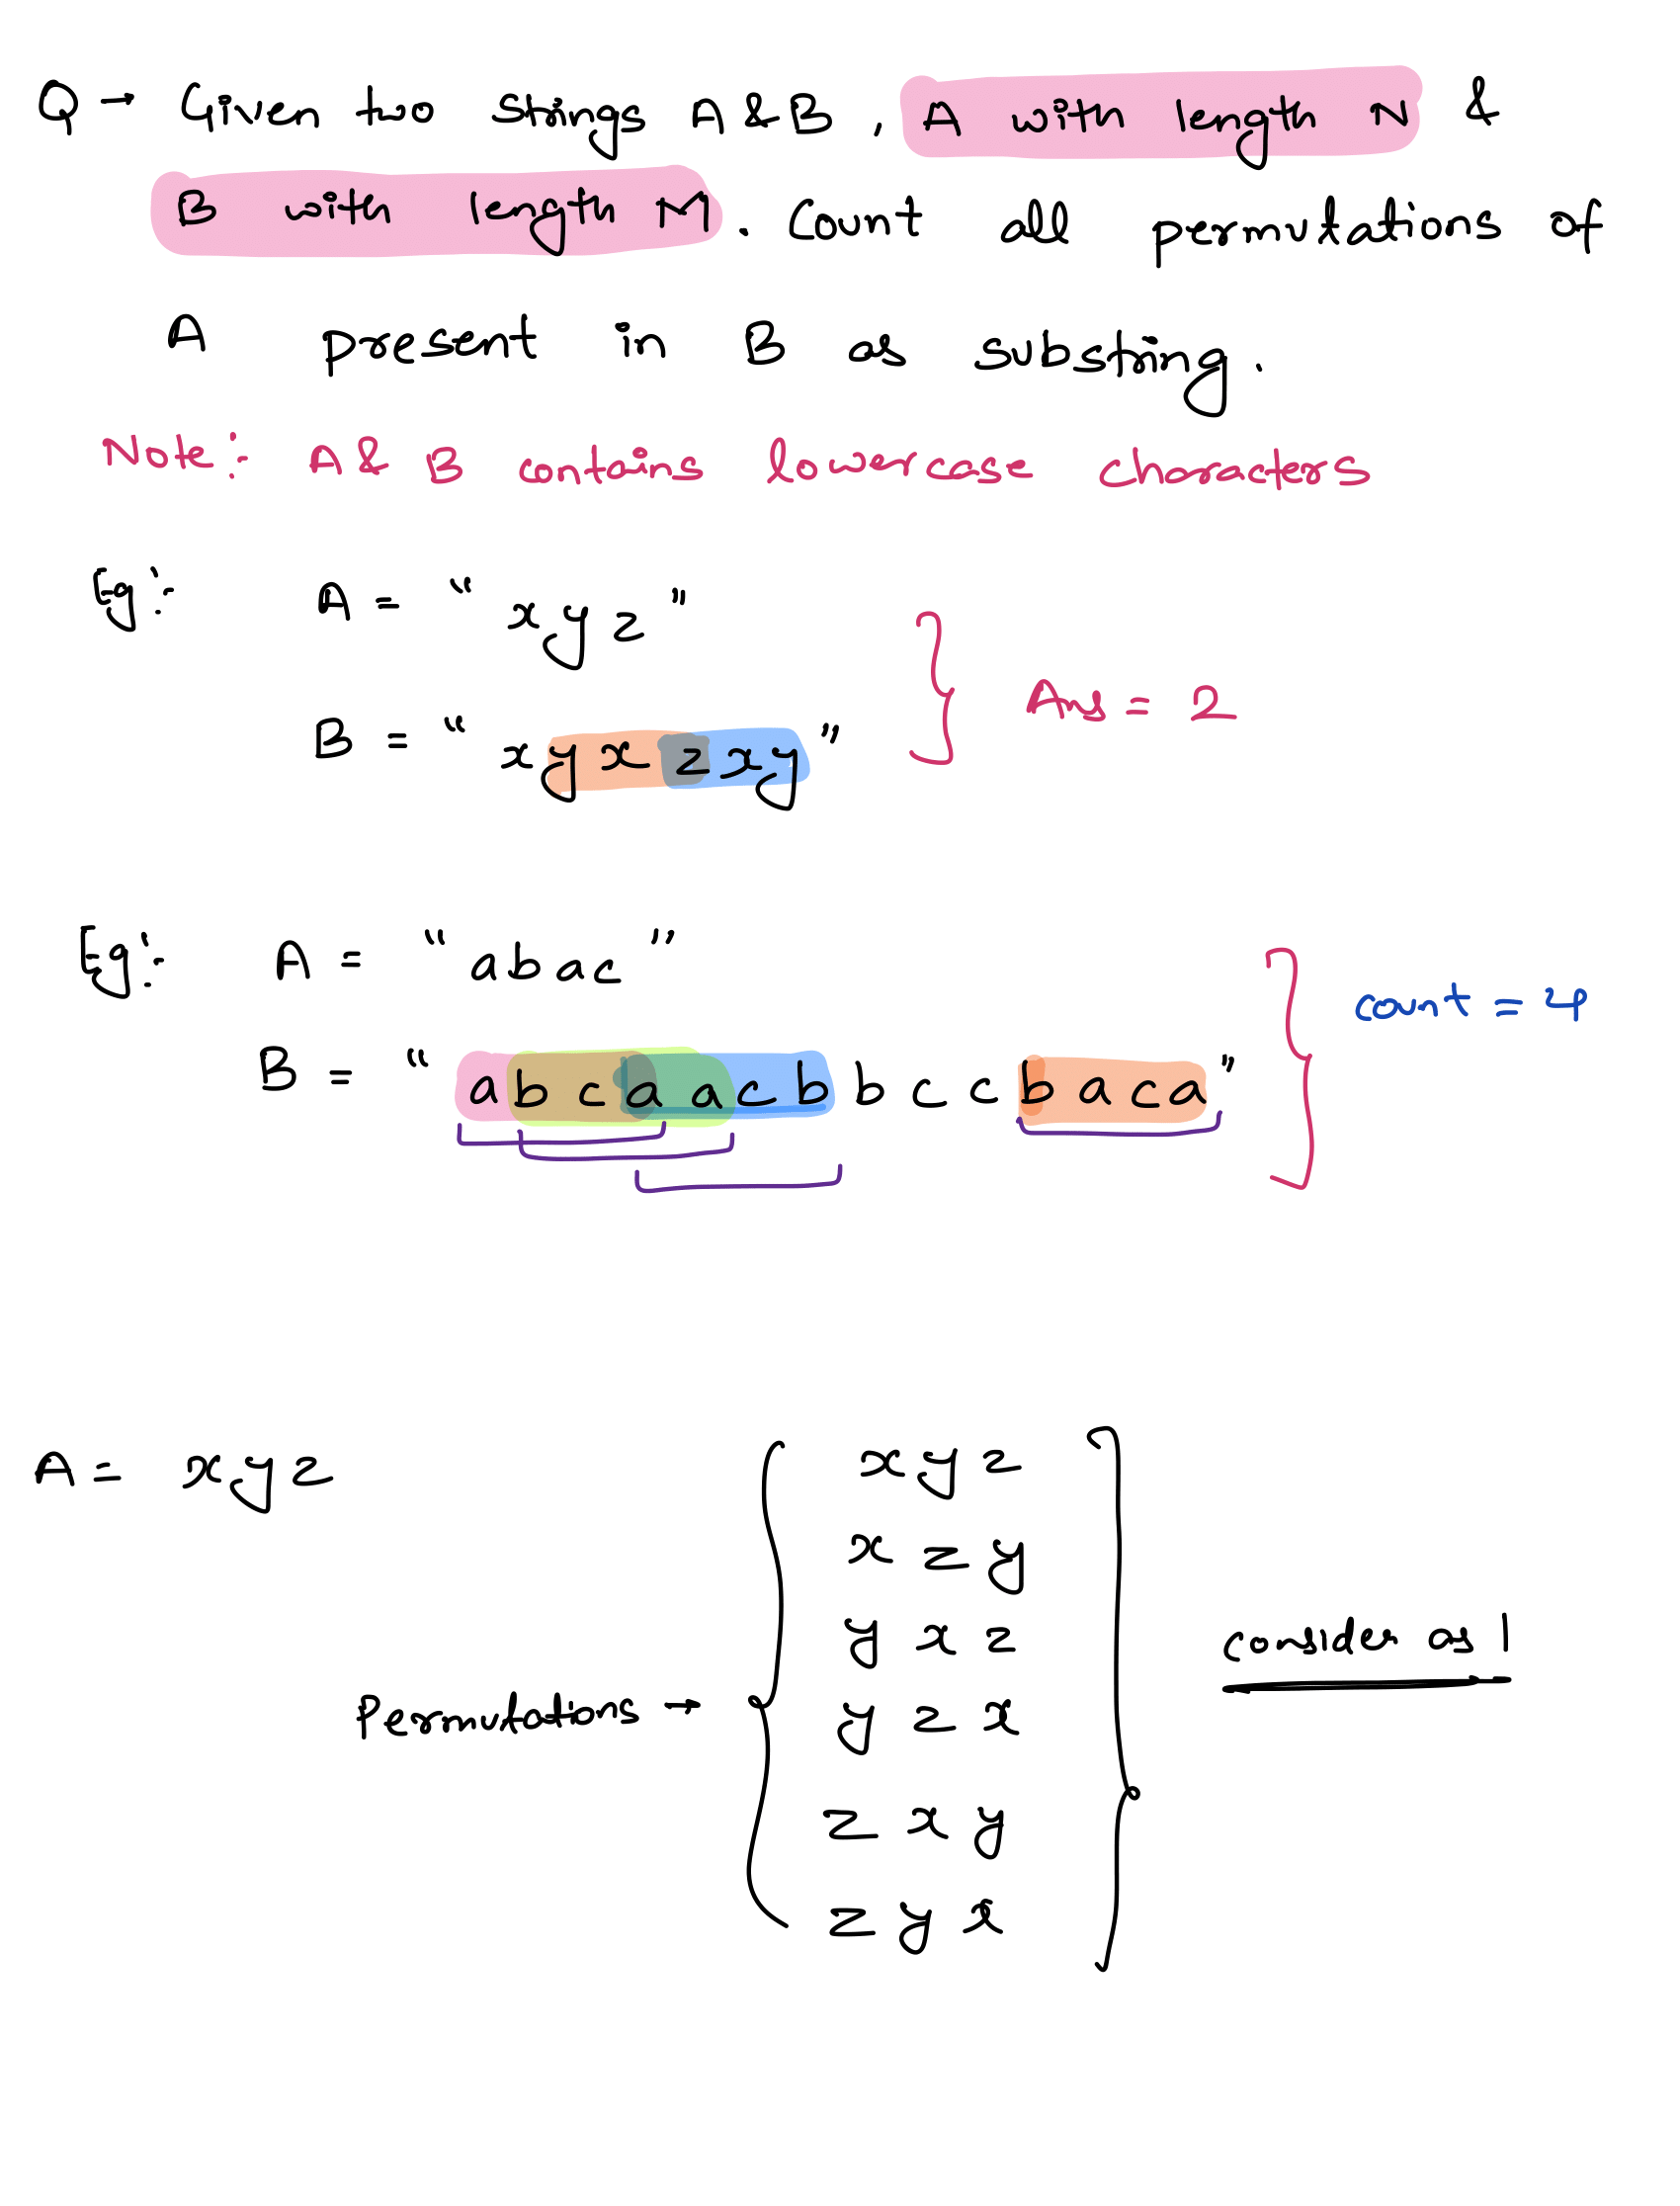 Q → Given two strings A & B , A with length N &
B with length M . Count all permutations of
A present in B as substring .
Note :- A & B contains lowercase characters
Eg :- A = " x y z "
B = " x y x z x y " Ans = 2
Eg :- A = " a b a c "
B = " a b c a a c b b c c b a c a " count = 4
A = x y z
Permutations →
x y z
x z y
y x z
y z x
z x y
z y x
consider as 1